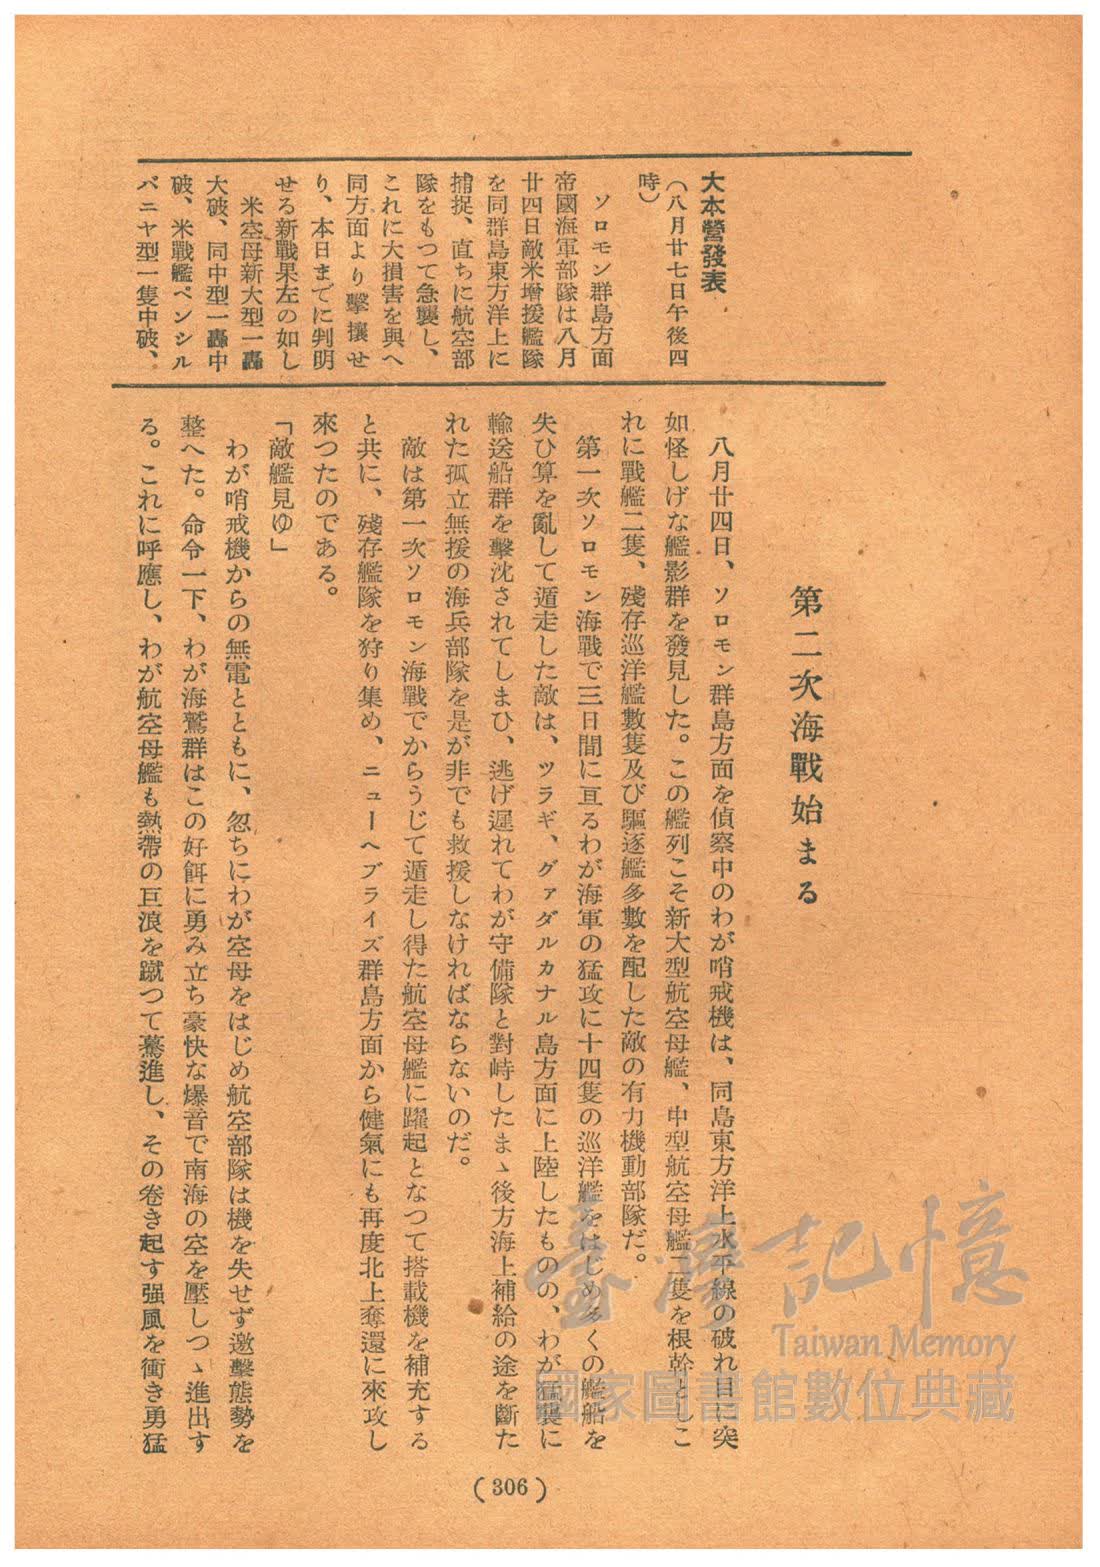 大本營發表
(八月廿七日午後四
時)
ソロモン群島方面
帝國海軍部隊は八月
廿四日敵米增援艦隊
を同群島東方洋上に
捕捉、直ちに航空部
隊をもつて急襲し、
これに大損害を與へ
同方面より擊攘せ
り、本日までに判明
せる新戰果左の如し
米空母新大型一轟
大破、同中型一轟中
破、米戰艦ペンシル
バニヤ型一隻中破、
第二次海戰始まる
八月廿四日、ソロモン群島方面を偵察中のわが哨戒機は、同島東方洋上水平線の破れ目に突
如怪しげな艦影群を發見した。この艦列こそ新大型航空母艦、中型航空母艦二隻を根幹としこ
れに戰艦二隻、殘存巡洋艦數隻及び驅逐艦多數を配した敵の有力機動部隊だ。
第一次ソロモン海戰で三日間に亘るわが海軍の猛攻に十四隻の巡洋艦をはじめ多くの艦船を
失ひ算を亂して遁走した敵は、ツラギ、グァダルカナル島方面に上陸したものの、わが猛襲に
輸送船群を擊沈されてしまひ、逃げ遲れてわが守備隊と對峙したまゝ後方海上補給の途を斷た
れた孤立無援の海兵部隊を是が非でも救援しなければならないのだ。
敵は第一次ソロモン海戰でからうじて遁走し得た航空母艦に躍起となつて搭載機を補充する
と共に、殘存艦隊を狩り集め、ニューヘブライズ群島方面から健氣にも再度北上奪還に來攻し
來つたのである。
「敵艦見ゆ」
わが哨戒機からの無電とともに、忽ちにわが空母をはじめ航空部隊は機を失せず邀擊態勢を
整へた。命令一下、わが海鷲群はこの好餌に勇み立ち豪快な爆音で南海の空を壓しつゝ進出す
る。これに呼應し、わが航空母艦も熱帶の巨浪を蹴つて驀進し、その卷き起す强風を衝き勇猛
(306)
臺灣記憶
Taiwan Memory
國家圖書館數位典藏